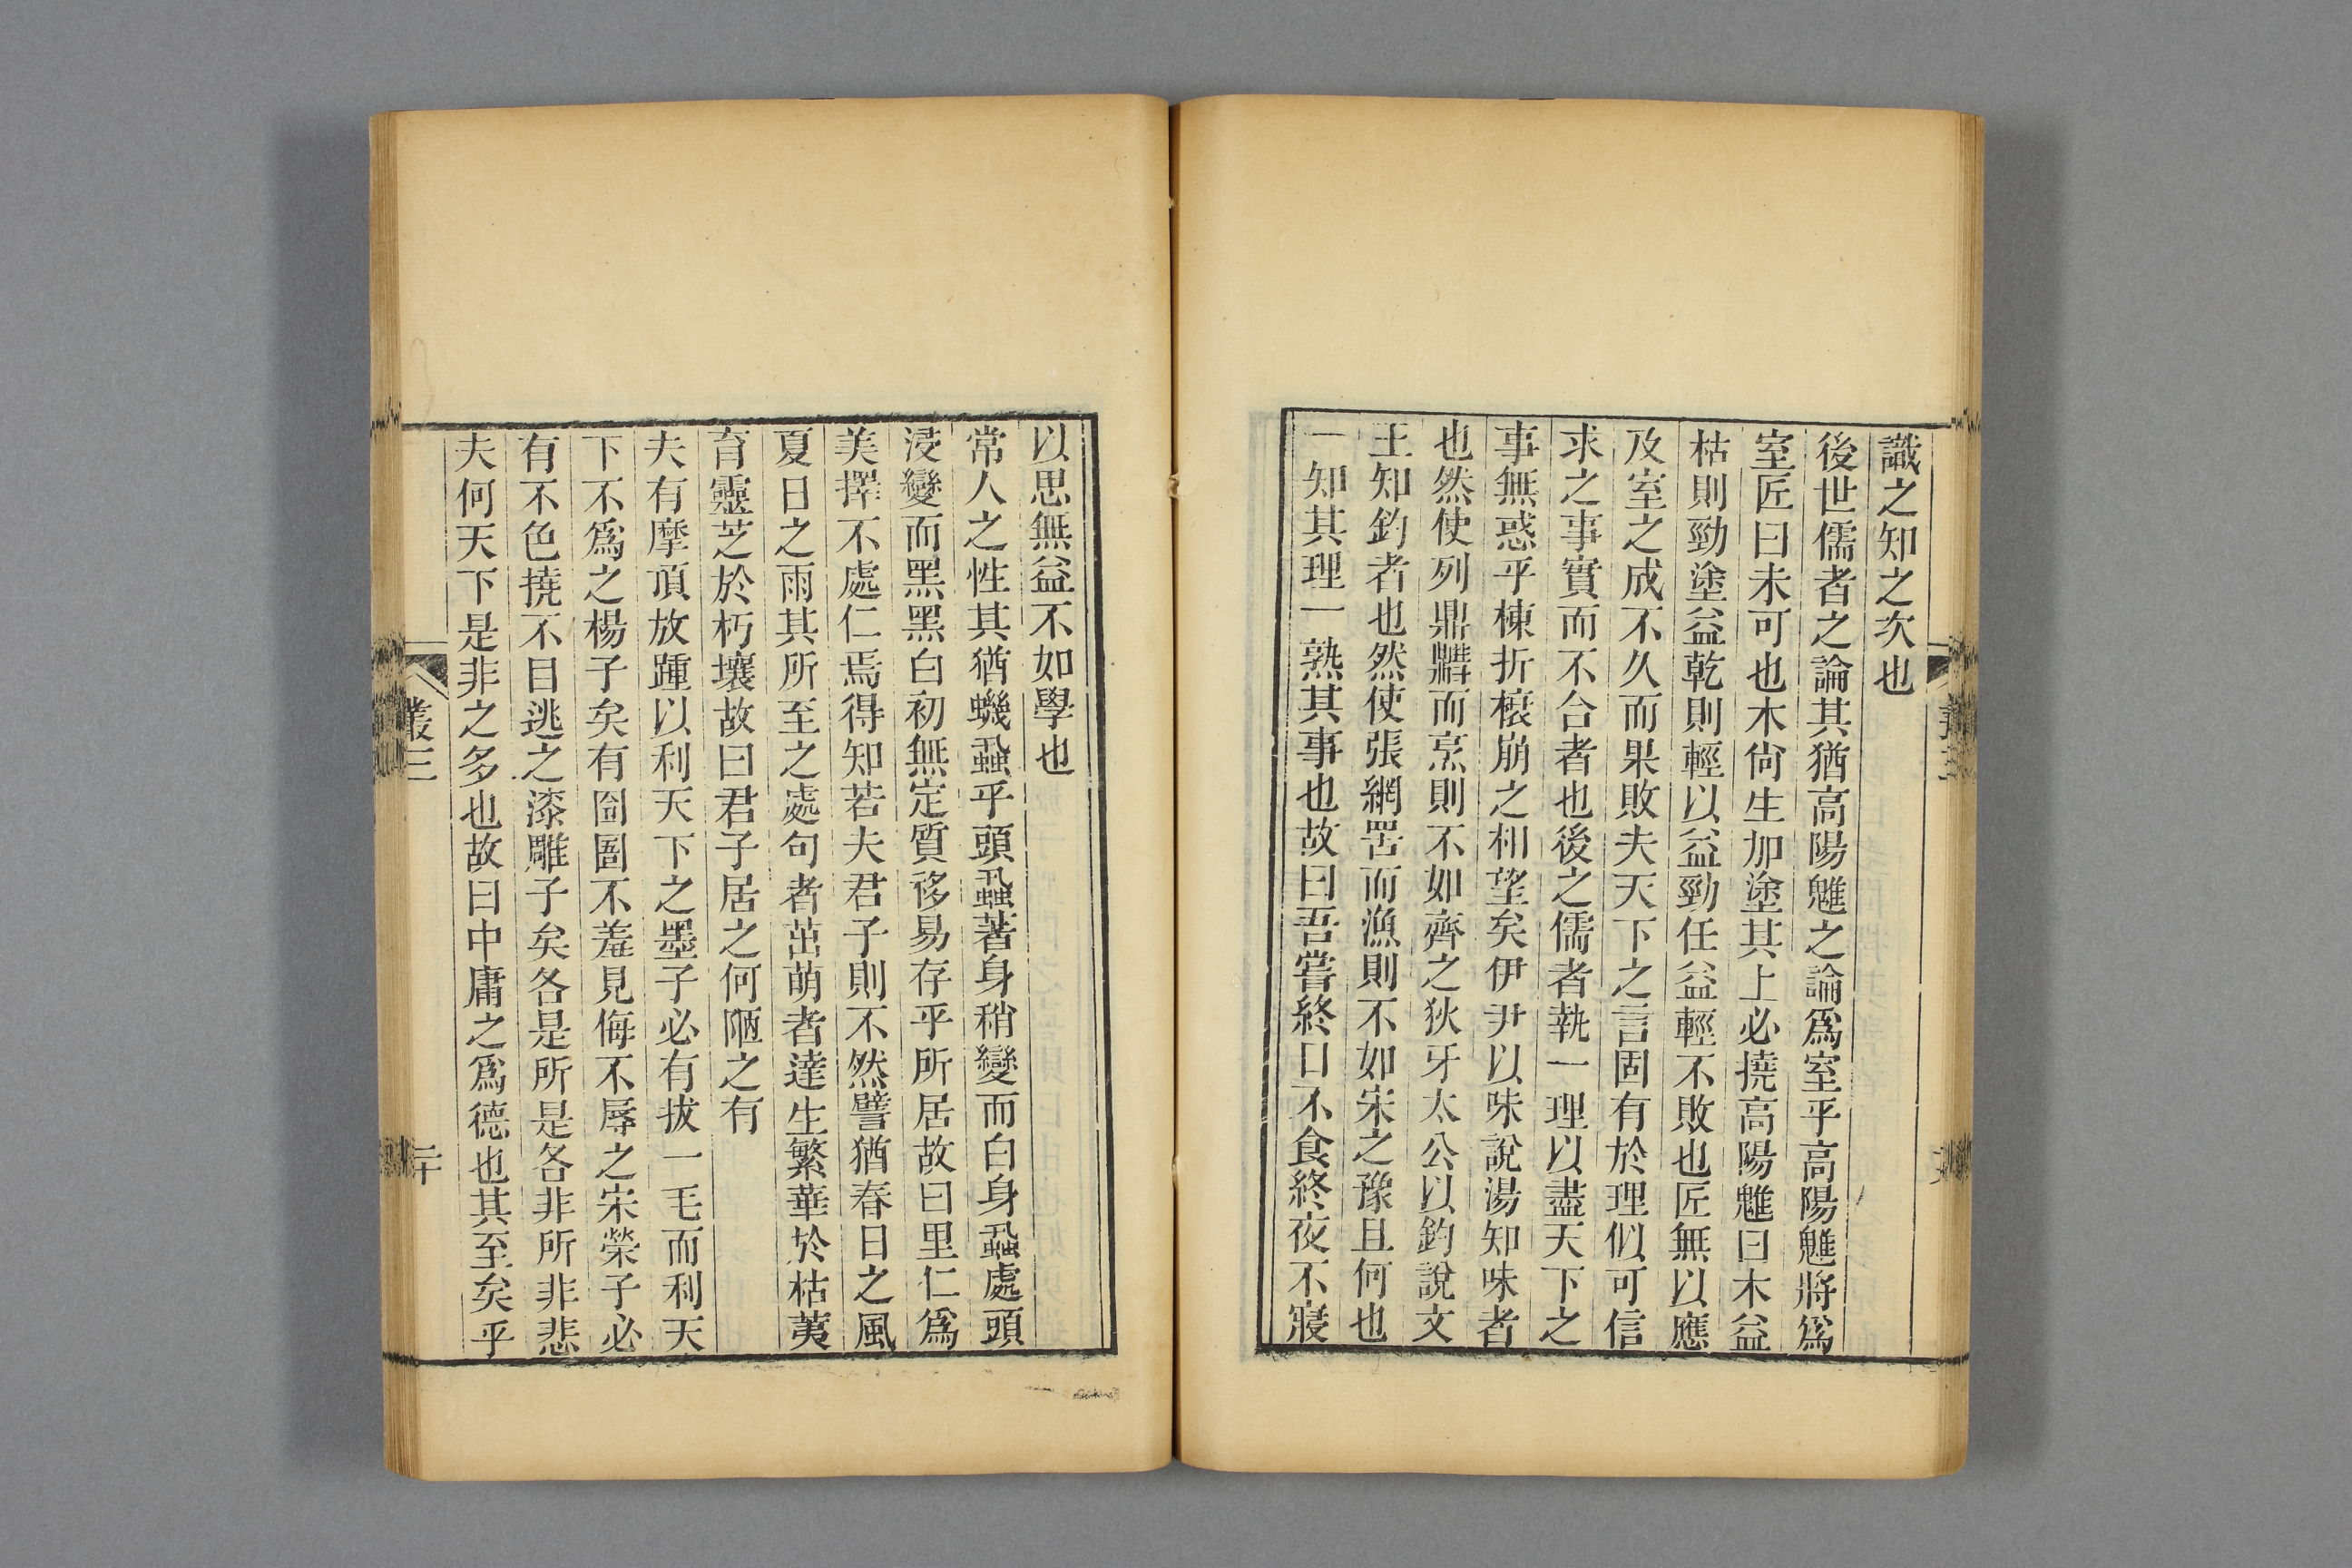 識之知之次也
後世儒者之論其猶高陽魋之論爲室乎高陽魋將爲
室匠曰未可也木尙生加塗其上必撓高陽魋曰木益
枯則勁塗益乾則輕以益勁任益輕不敗也匠無以應
及室之成不久而果敗夫天下之言固有於理似可信
求之事實而不合者也後之儒者執一理以盡天下之
事無惑乎棟折榱崩之相望矣伊尹以味說湯知味者
也然使列鼎鼒而烹則不如齊之狄牙太公以釣說文
王知釣者也然使張網罟而漁則不如宋之豫且何也
一知其理一熟其事也故曰吾嘗終日不食終夜不寢
以思無益不如學也
常人之性其猶蟣蝨乎頭蝨著身稍變而白身蝨處頭
浸變而黑黑白初無定質移易存乎所居故曰里仁爲
美擇不處仁焉得知若夫君子則不然譬猶春日之風
夏日之雨其所至之處句者茁萌者達生繁華於枯荑
育靈芝於朽壤故曰君子居之何陋之有
夫有摩頂放踵以利天下之墨子必有拔一毛而利天
下不爲之楊子矣有囹圄不羞見侮不辱之宋榮子必
有不色撓不目逃之漆雕子矣各是所是各非所非悲
夫何天下是非之多也故曰中庸之爲德也其至矣乎
叢三
二十